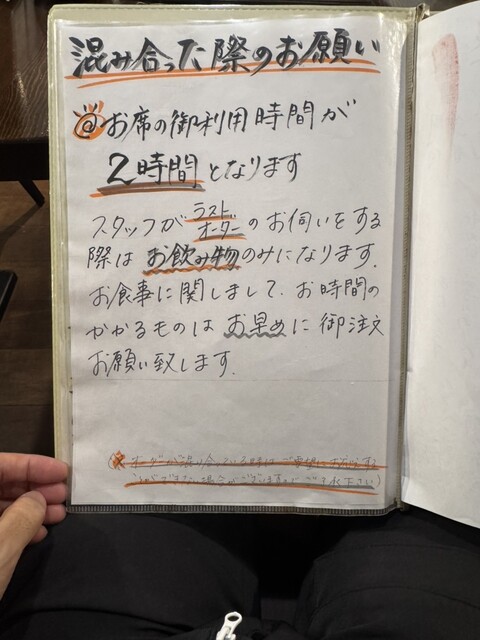 混み合った際のお願い
@お席の御利用時間が
2時間となります
スタッフがラストオーダーのお伺いをする
際はお飲み物のみになります.
お食事に関しまして、お時間の
かかるものはお早めに御注文
お願い致します.
(※オーダーが混み合っている時はご要望にお応えする